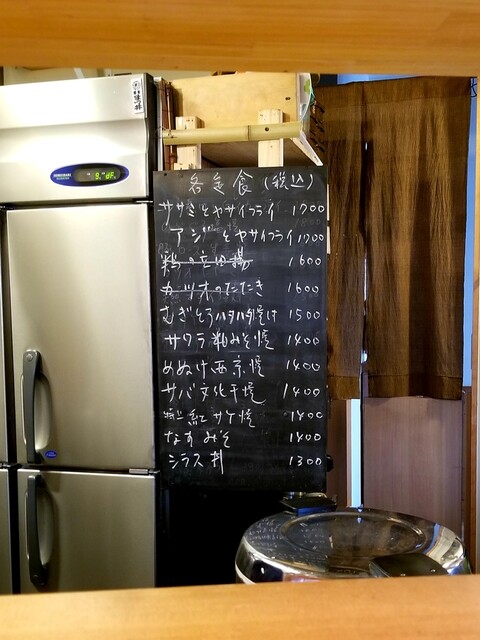 各定食(税込)
ササミとヤサイフライ 1700
アジとヤサイフライ 1700
鶏の立田揚 1600
カツオのたたき 1600
むぎとろハタハタ焼け 1500
サワラ糀みそ焼 1400
めぬけ西京焼 1400
サバ文化干焼 1400
特上紅サケ焼 1400
なすみそ 1400
シラス丼 1300
HOSHIZAKI